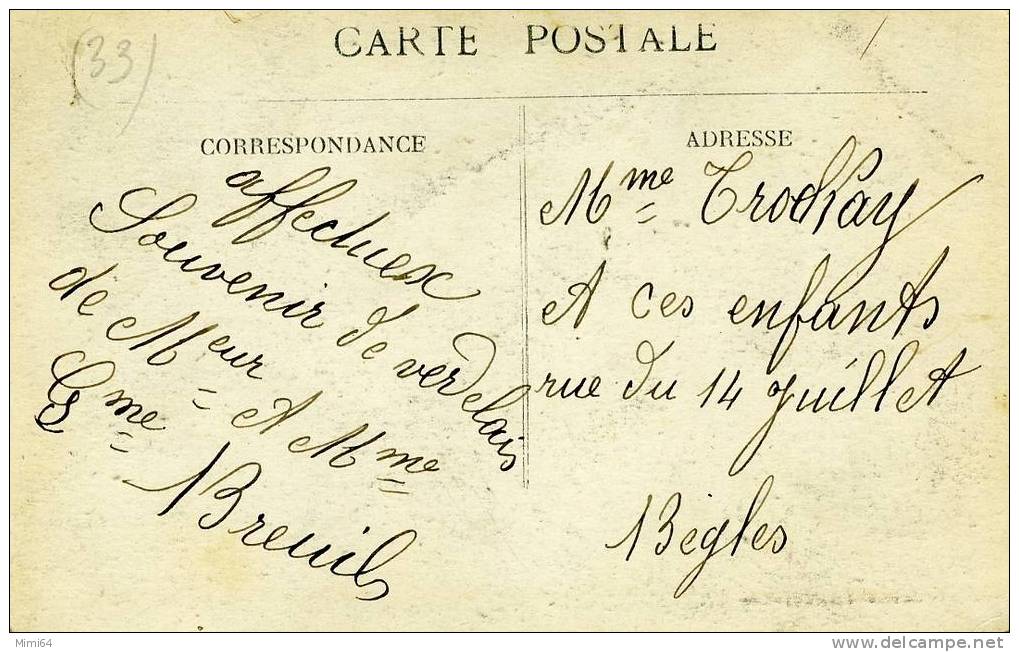 (33)
CARTE POSTALE
CORRESPONDANCE
affectuex
Souvenir de verdelais
de Meur A Mme
Gme Breuils
ADRESSE
Mme Trochay
A ces enfants
rue du 14 Juillet
Bègles
Mimi64
www.delcampe.net